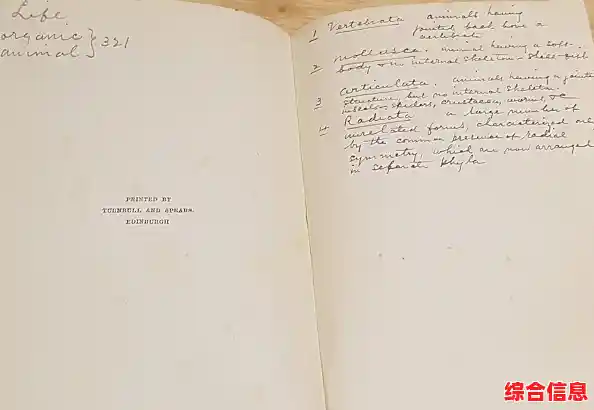 Life
organic } 321
animal }
PRINTED BY
TURNBULL AND SPEARS,
EDINBURGH
1 Vertebrata animals having
jointed back bone a
vertebrate
2 mollusca. animal having a soft
body & no internal skeleton - shell-fish
3 articulata. animals having a jointed
structure, but no internal skeleton.
spiders, crustacea, worms, &c
4 Radiata a large number of
unrelated forms, characterized only
by the common presence of radial
symmetry, which are now arranged
in separate phyla
综合信息